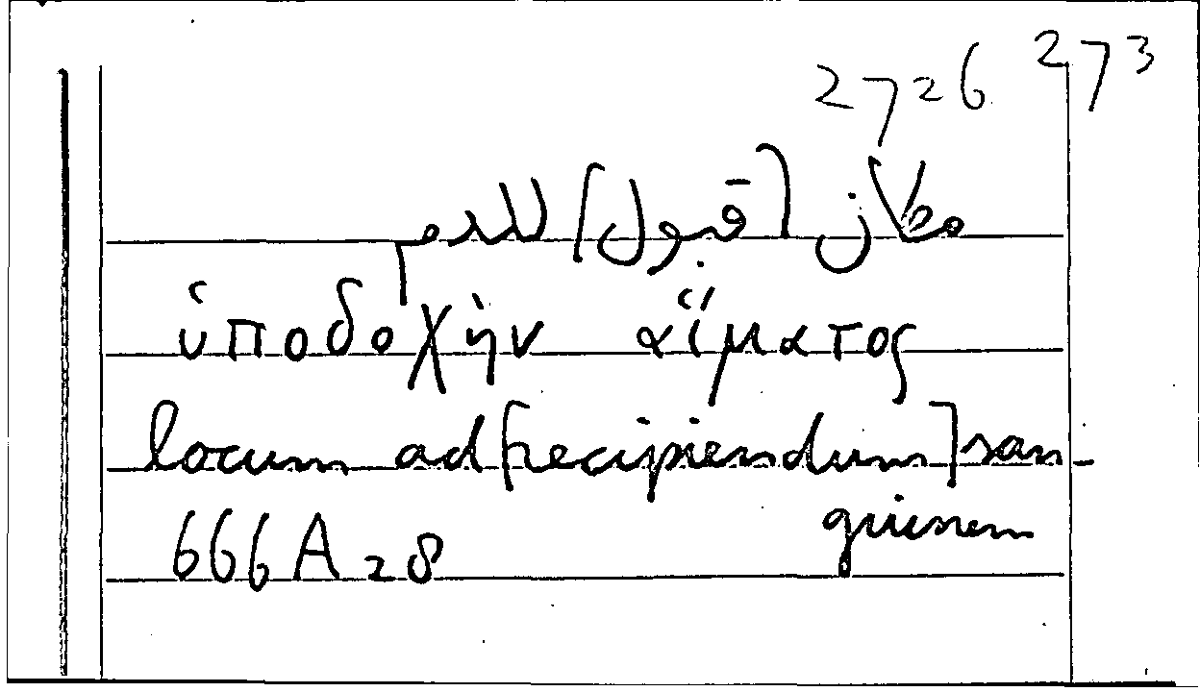 273
2726
مكان [قبول] للدم
ὑποδοχὴν αἵματος
locum ad [recipiendum] san-
guinem
666A28